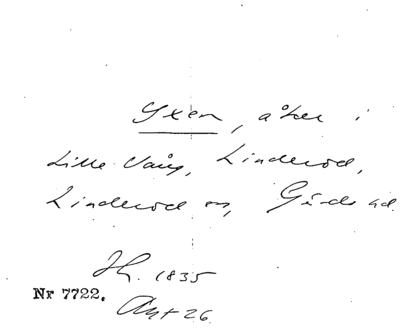 Yxen, åker i
Lille Vång, Linderöd,
Linderöd sn, Gärds hd.
1835
Nr 7722. Akt 26